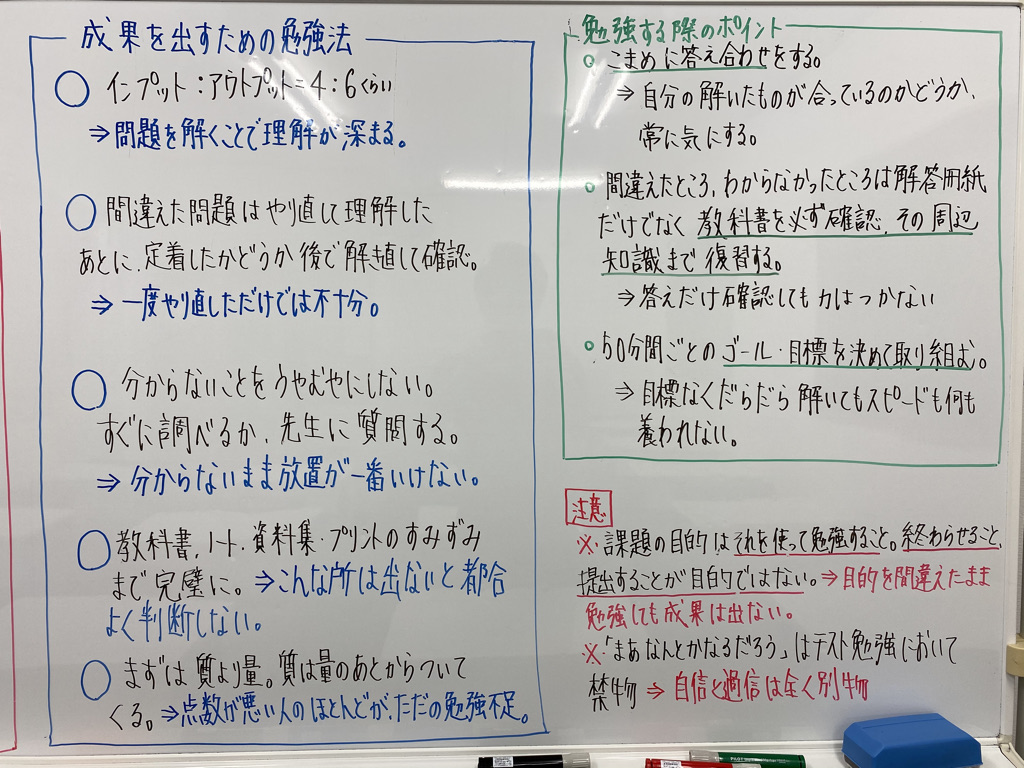 成果を出すための勉強法
◯ インプット:アウトプット=4:6くらい
⇒問題を解くことで理解が深まる。
◯ 間違えた問題はやり直して理解した
あとに、定着したかどうか後で解き直して確認。
⇒ 一度やり直しただけでは不十分。
◯ 分からないことをうやむやにしない。
すぐに調べるか、先生に質問する。
⇒ 分からないまま放置が一番いけない。
◯ 教科書、ノート・資料集・プリントのすみずみ
まで完璧に。⇒こんな所は出ないと都合
よく判断しない。
◯ まずは質より量。質は量のあとからついて
くる。⇒点数が悪い人のほとんどが、ただの勉強不足。
勉強する際のポイント
○ こまめに答え合わせをする。
⇒ 自分の解いたものが合っているのかどうか、
常に気にする。
○ 間違えたところ、わからなかったところは解答冊紙
だけでなく 教科書を必ず確認、その周辺
知識まで復習する。
⇒ 答えだけ確認しても力はつかない
○ 50分間ごとのゴール・目標を決めて取り組む。
⇒ 目標なくだらだら解いてもスピードも何も
養われない。
注意
※ 課題の目的はそれを使って勉強すること。終わらせること、
提出することが目的ではない。⇒目的を間違えたまま
勉強しても成果は出ない。
※「まあなんとかなるだろう」はテスト勉強において
禁物 ⇒ 自信と過信は全く別物
PILOT